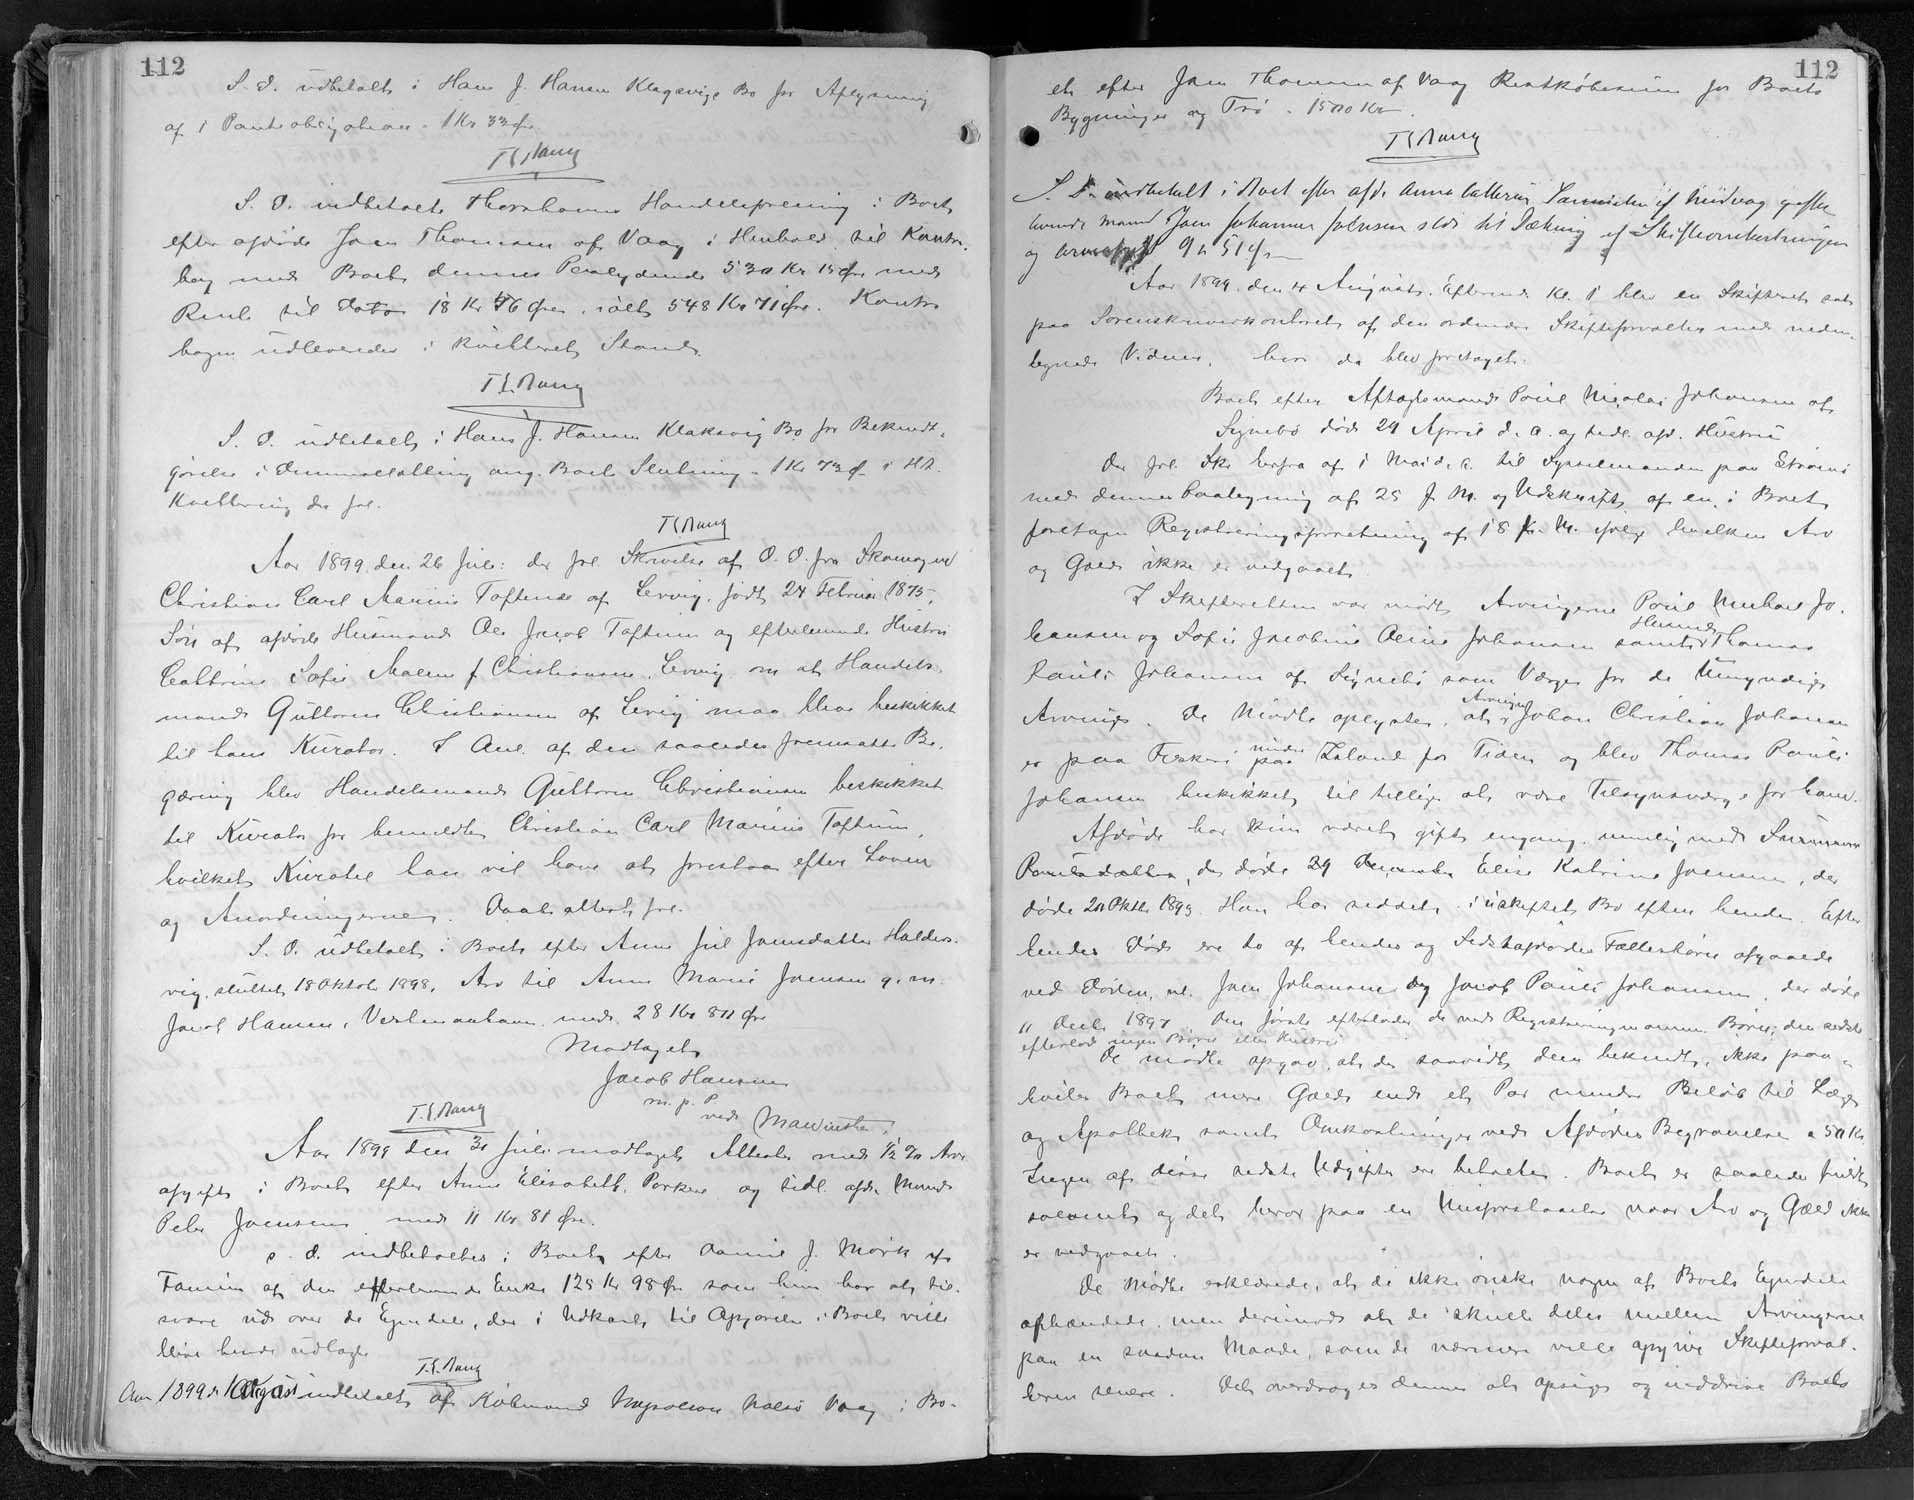 112
S. D. udbetalt i Hans J. Hansen Klagsvigs Bo for Aflysning
af 1 Panteobligation - 1 Kr 33 Øre
S. D. indbetalt Thorshavns Handelsforening i Boet
efter afdøde Joen Thomsen af Vaag i Henhold til Kontra-
bog med Boet dennes Paalydende 530 Kr 15 Øre med
Rente til Dato 18 Kr 46 Øre, ialt 548 Kr 71 Øre. Kontra
bogen udleveredes i kvitteret Stand.
S. D. udbetalt i Hans J. Hansen Klaksvig Bo for Bekendt-
gørelse i Dimmalætting ang. Boets Slutning - 1 Kr 73 Ø
Kvittering der fol.
Aar 1899, den 26 Juli: der fol. Skrivelse af D. D. fra Skomager
Christian Carl Marius Toftum af Lervig, født 24 Februar 1875,
Søn af afdøde Husmand Ole Jacob Toftum og efterlevende Hustru
Cathrine Sofie Malene f Christiansen, Lervig, om at Handels-
mand Guttorm Christiansen af Lervig maa blive beskikket
til hans Kurator. I Anl. af den saaledes fremsatte Be-
gæring blev Handelsmand Guttorm Christiansen beskikket
til Kurator for bemeldte Christian Carl Marius Toftum,
hvilket Kuratel han vil have at forestaa efter Loven
og Anordningerne. Daabsattest fol.
S. D. udbetalt i Boet efter Anne Joensdatter Haldors-
vig, sluttet 18 Oktob 1898, Arv til Anne Marie Joensen g. m.
Jacob Hansen, Vestmanhavn med 28 Kr 80 Øre
Modtaget
Jacob Hansen
m. p. P.
ved
Aar 1899 den 31 Juli modtaget Attester med ½ % Arve
afgift i Boet efter Anne Elisabeth Porkere og tidl. afd. Mand
Peter Joensen med 11 Kr 81 Øre.
s. d. indbetaltes i Boet efter Daniel J. Mørk af
Famien af den efterlevende Enke 125 Kr 98 Øre som hun har at til-
svare ud over de Ejendele, der i Udkast til Opgørelse i Boet ville
blive hende udlagte
Aar 1899 d. 1 August indbetalt af Købmand Napoleon Nolsø Vaag i Bo-
112
et efter Joen Thomsen af Vaag Restkøbesum for Boets
Bygninger og Trø - 1500 Kr.
S. D. indbetalt i Boet efter afd. Anna Cathrine af Midvaag g. efter
levende Mand Joen Johannes Joensen sst. til Dækning af Skifteomkostningen
og Arveafgift 9 Kr 51 Øre
Aar 1899, den 4 August, Efterm. Kl. 1 blev en Skifteret sat
paa Sorenskriverkontoret af den ordinære Skifteforvalter med neden-
tegnede Vidner, hvor da blev foretaget.
Boet efter Aftægtsmand Poul Nicolai Johansen af
Signebø død 29 April d. A. og tidl. afd. Hustru
Der fol. Skr. herfra af 1 Mai d. A. til Sysselmanden paa Strømø
med dennes Paategning af 25 f. M. og Udskrift af en i Boet
foretagen Registreringsforretning af 18 f. M. ifølge hvilken Arv
og Gæld ikke er vedgaaet.
I Skifteretten var mødt Arvingerne Poul Michael Jo-
hansen og Sofie Jacobine Oline Johansen samt Husmand Thomas
Pauli Johansen af Signebø som Værge for de Umyndige
Arvinger. De Mødte oplyste, at Arvingen Johan Christian Johansen
er paa Fiskeri under Island for Tiden og blev Thomas Pauli
Johansen beskikket til tillige at være Tilsynsværge for ham.
Afdøde har kun været gift engang nemlig med
Elise Katrine Joensen, der
døde 20 Oktb 1893. Han har siddet i uskiftet Bo efter hende. Efter
hendes Død ere to af hendes og Sidstafdødes Fællesbørn afgaaede
ved Døden, nl. Joen Johansen og Jacob Pauli Johansen, der døde
11 Decb 1897. Den første efterlader de ved Registreringen Børn; den sidste
efterlod ingen Børn eller Hustru
De mødte opgav, at der saavidt dem bekendt, ikke paa-
hviler Boet mere Gæld end et Par mindre Beløb til Læge
og Apothek samt Omkostninger ved Afdødes Begravelse a 50 Kr
Ingen af disse sidste Udgifter ere betalte. Boet er saaledes fuldt
solvent og det beror paa en Misforstaaelse naar Arv og Gæld ikke
er vedgaaet.
De Mødte erklærede, at de ikke ønske nogen af Boets Ejendele
afhændede, men derimod at de skulle deles mellem Arvingerne
paa en saadan Maade, som de nærmere ville opgive Skifteforval-
teren senere. Det overdroges denne at opsige og inddrive Boets